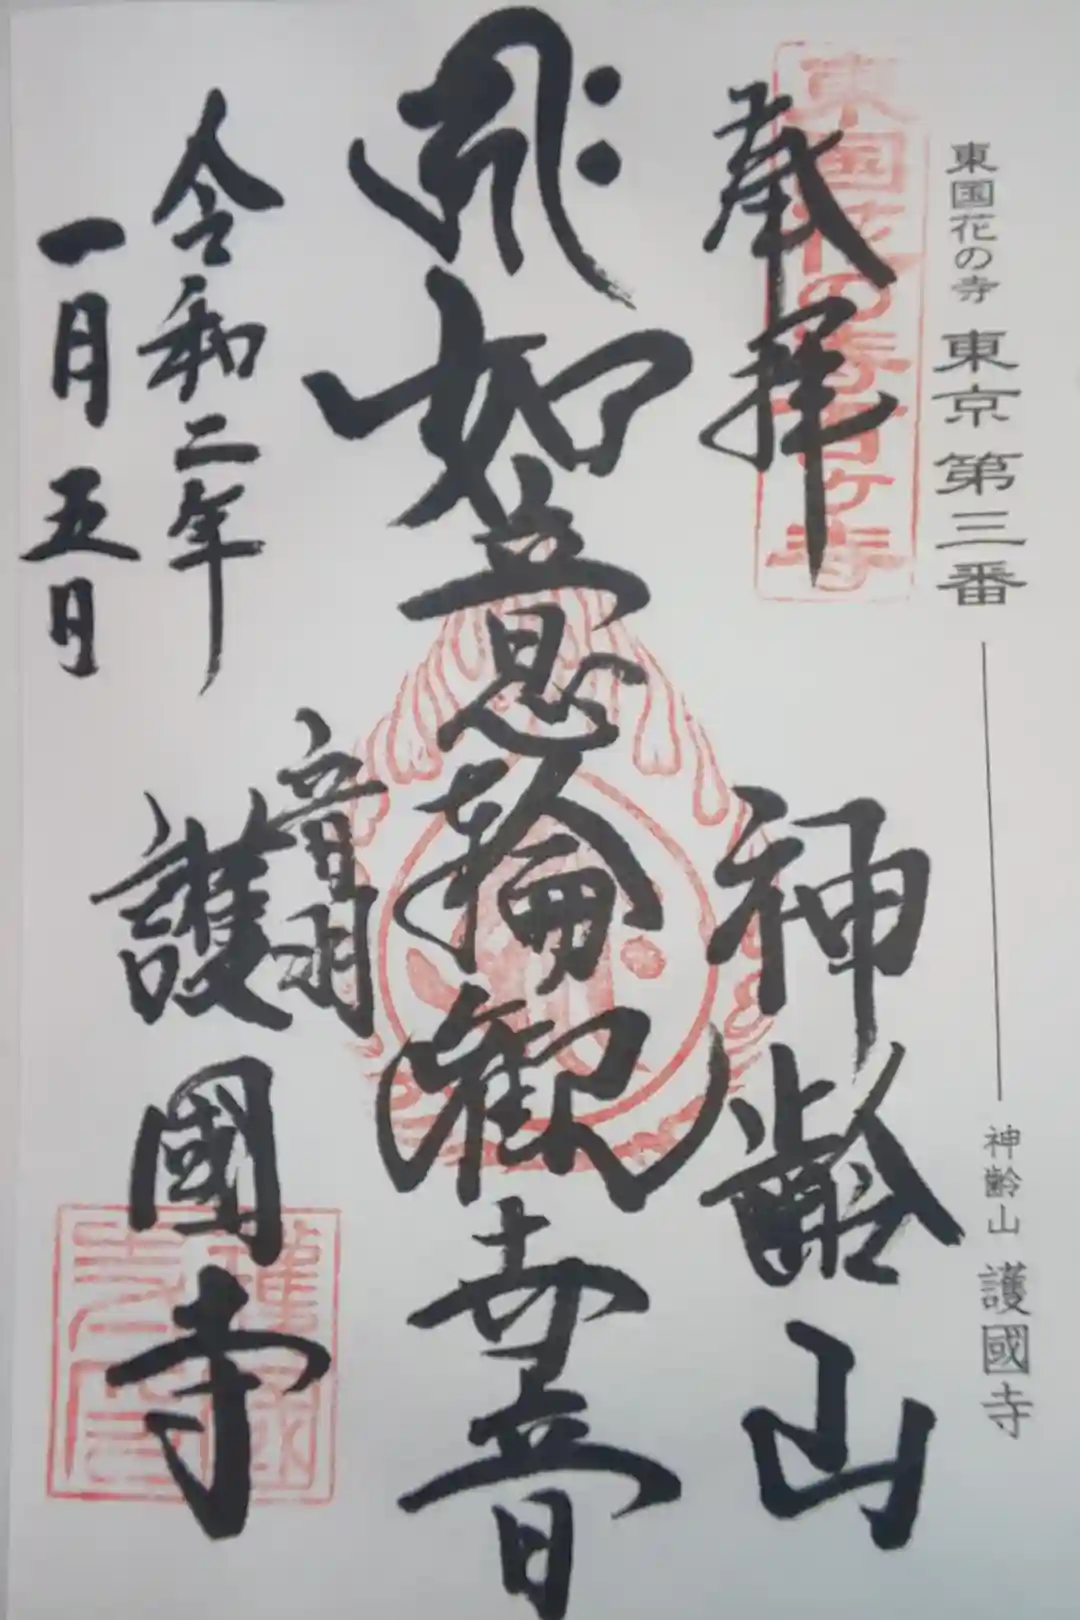 東国花の寺 東京第三番 ── 神齢山 護國寺
東国花の寺百ヶ寺
奉拝
神齢山
如意輪観世音
音羽
護國寺
令和二年
一月五日